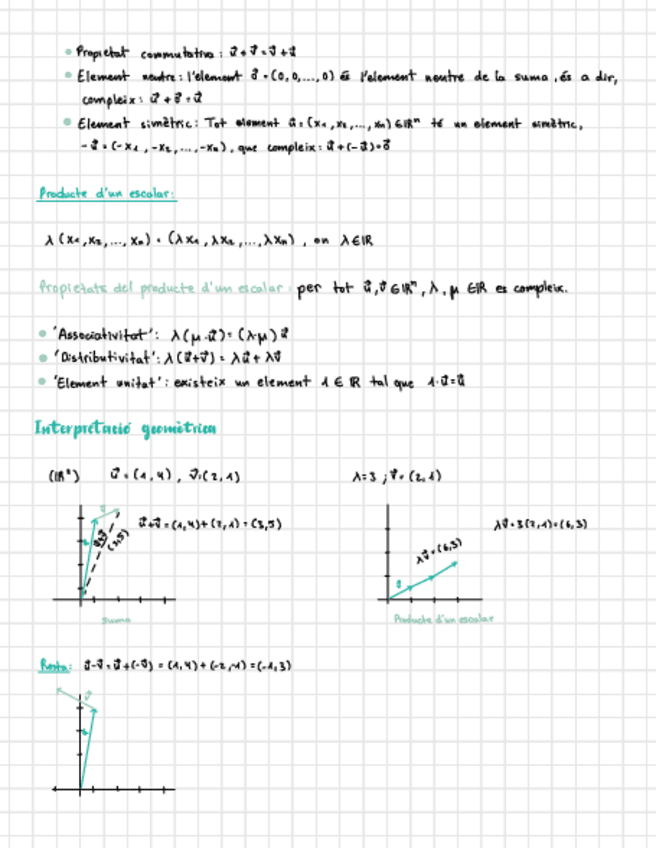 • Propietat commutativa: u⃗+v⃗=v⃗+u⃗
• Element neutre: l'element 0⃗=(0,0,...,0) és l'element neutre de la suma, és a dir,
compleix: u⃗+0⃗=u⃗
• Element simètric: Tot element u⃗=(x₁,x₂,...,xₙ)∈ℝⁿ té un element simètric,
-u⃗=(-x₁,-x₂,...,-xₙ), que compleix: u⃗+(-u⃗)=0⃗
Producte d'un escalar:
λ(x₁,x₂,...,xₙ)=(λx₁,λx₂,...,λxₙ), on λ∈ℝ
Propietats del producte d'un escalar: per tot u⃗,v⃗∈ℝⁿ, λ,μ∈ℝ es compleix.
• 'Associativitat': λ(μ·u⃗)=(λ·μ)u⃗
• 'Distributivitat': λ(u⃗+v⃗)=λu⃗+λv⃗
• 'Element unitat': existeix un element 1∈ℝ tal que 1·u⃗=u⃗
Interpretació geomètrica
(ℝ²) u⃗=(1,4), v⃗=(2,1)
λ=3; v⃗=(2,1)
v⃗
u⃗
u⃗+v⃗
(3,5)
u⃗+v⃗=(1,4)+(2,1)=(3,5)
Suma
v⃗
λv⃗=(6,3)
λv⃗=3(2,1)=(6,3)
Producte d'un escalar
Resta: u⃗-v⃗=u⃗+(-v⃗)=(1,4)+(-2,-1)=(-1,3)
v⃗
u⃗